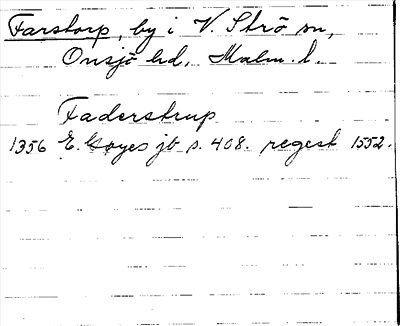 Farstorp, by i V. Strö sn,
Onsjö hd, Malm. l.
Faderstrup
1356 E. Goyes jb s. 408. regest 1552.